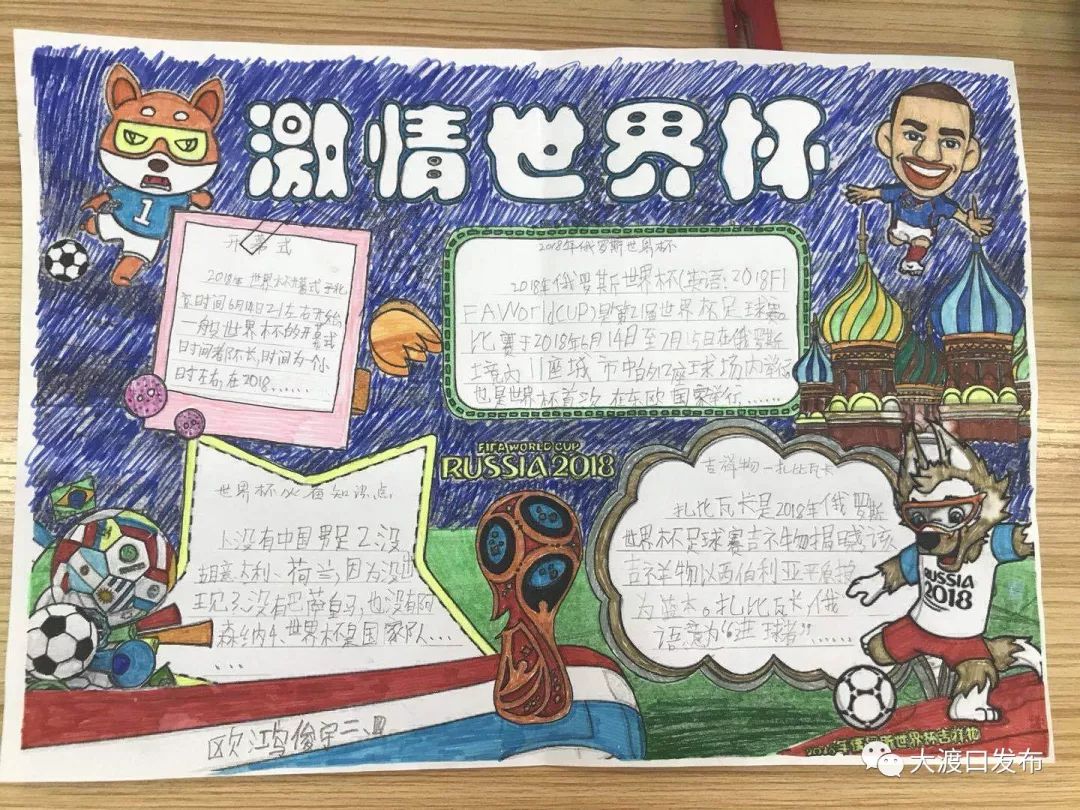 激情世界杯
1
开幕式
2018年世界杯开幕式于北
京时间6月14日21左右开始,
一般世界杯的开幕式
时间都不长,时间为个小
时左右,在2018......
2018年俄罗斯世界杯
2018年俄罗斯世界杯(英语:2018FI
FAWorldCUP)是第21届世界杯足球赛。
比赛于2018年6月14日至7月15日在俄罗斯
境内11座城市中的12座球场内举行
也是世界杯首次在东欧国家举行......
FIFA WORLD CUP
RUSSIA 2018
世界杯必备知识点
1.没有中国男足2.没
有意大利、荷兰,因为没出
现3.没有巴萨皇马,也没有阿
森纳4.世界杯是国家队...
...
吉祥物—扎比瓦卡
扎比瓦卡是2018年俄罗斯
世界杯足球赛吉祥物,据感该
吉祥物以西伯利亚平原狼
为蓝本。扎比瓦卡,俄
语意为“进球者”......
RUSSIA
2018
欧鸿俊
2018年俄罗斯世界杯吉祥物
大渡口发布